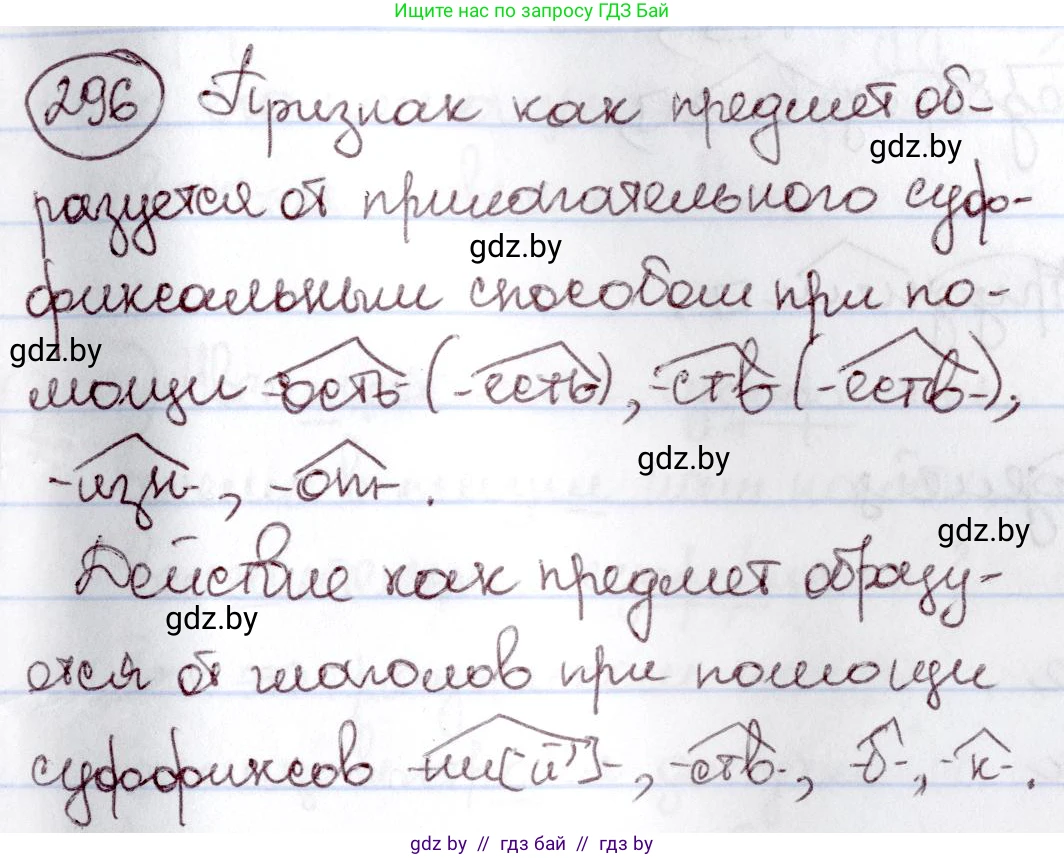 Ищите нас по запросу ГДЗ Бай
296 Признак как предмет об-
gdz.by
разуется от прилагательного суф-
gdz.by
фиксальным способом при по-
gdz.by
мощи -ость- (-есть), -ств- (-еств-),
gdz.by
-изн-, -от-.
gdz.by
Действие как предмет образу-
gdz.by
ются от глаголов при помощи
суффиксов -ни[й’]-, -ств-, -б-, -к-.
gdz.by // гдз бай // gdz.by